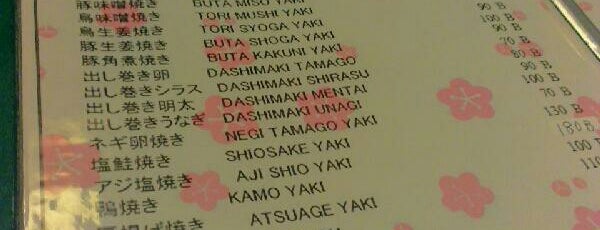 豚味噌焼き BUTA MISO YAKI 90 B
鳥味噌焼き TORI MUSHI YAKI 100 B
鳥生姜焼き TORI SYOGA YAKI 90 B
豚生姜焼き BUTA SHOGA YAKI 70 B
豚角煮焼き BUTA KAKUNI YAKI 80 B
出し巻き卵 DASHIMAKI TAMAGO 90 B
出し巻きシラス DASHIMAKI SHIRASU 100 B
出し巻き明太 DASHIMAKI MENTAI 70 B
出し巻きうなぎ DASHIMAKI UNAGI 130 B
ネギ卵焼き NEGI TAMAGO YAKI 180 B
塩鮭焼き SHIOSAKE YAKI 100
アジ塩焼き AJI SHIO YAKI 110
鴨焼き KAMO YAKI
厚揚げ焼き ATSUAGE YAKI